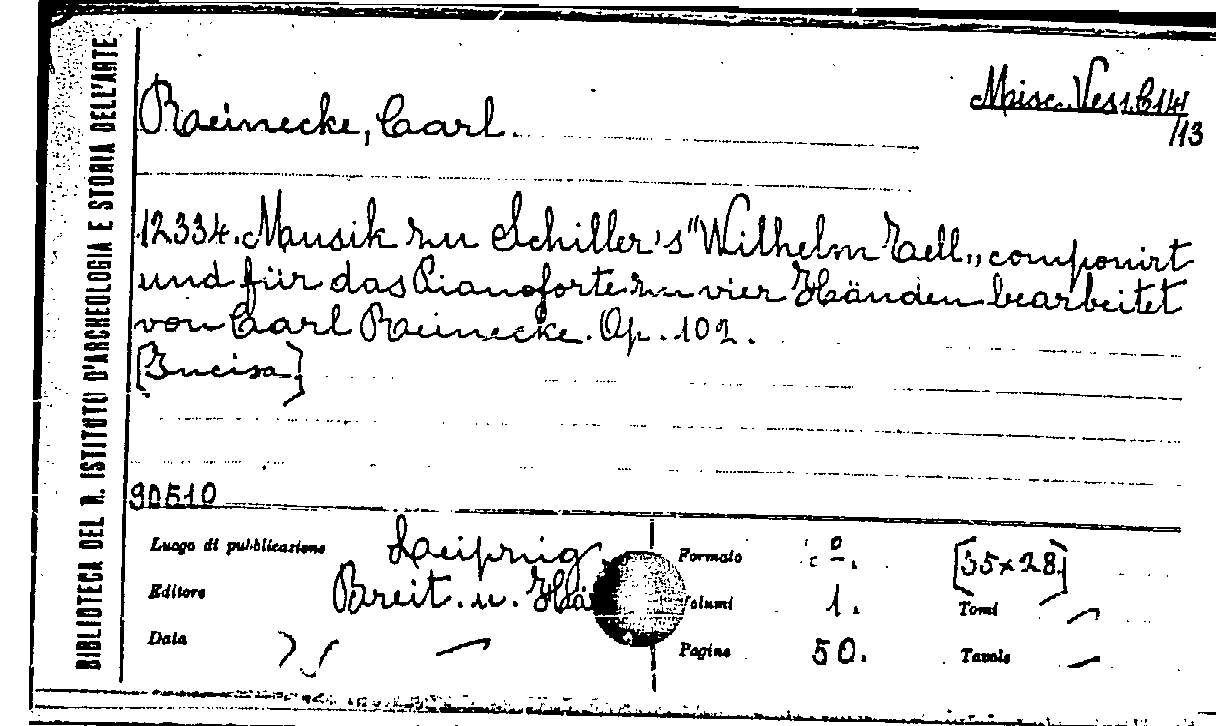 BIBLIOTECA DEL R. ISTITUTO D'ARCHEOLOGIA E STORIA DELL'ARTE
Reinecke, Carl.
Misc. Ves1.C14
/13
12334. Musik zu Schiller's "Wilhelm Tell„ componirt
und für das Pianoforte zu vier Händen bearbeitet
von Carl Reinecke. Op. 102.
[Incisa]
90510
Luogo di pubblicazione Leipzig
Formato [35×28]
Editore Breit. u. Hä
Volumi 1. Tomi –
Data –
Pagine 50. Tavole –